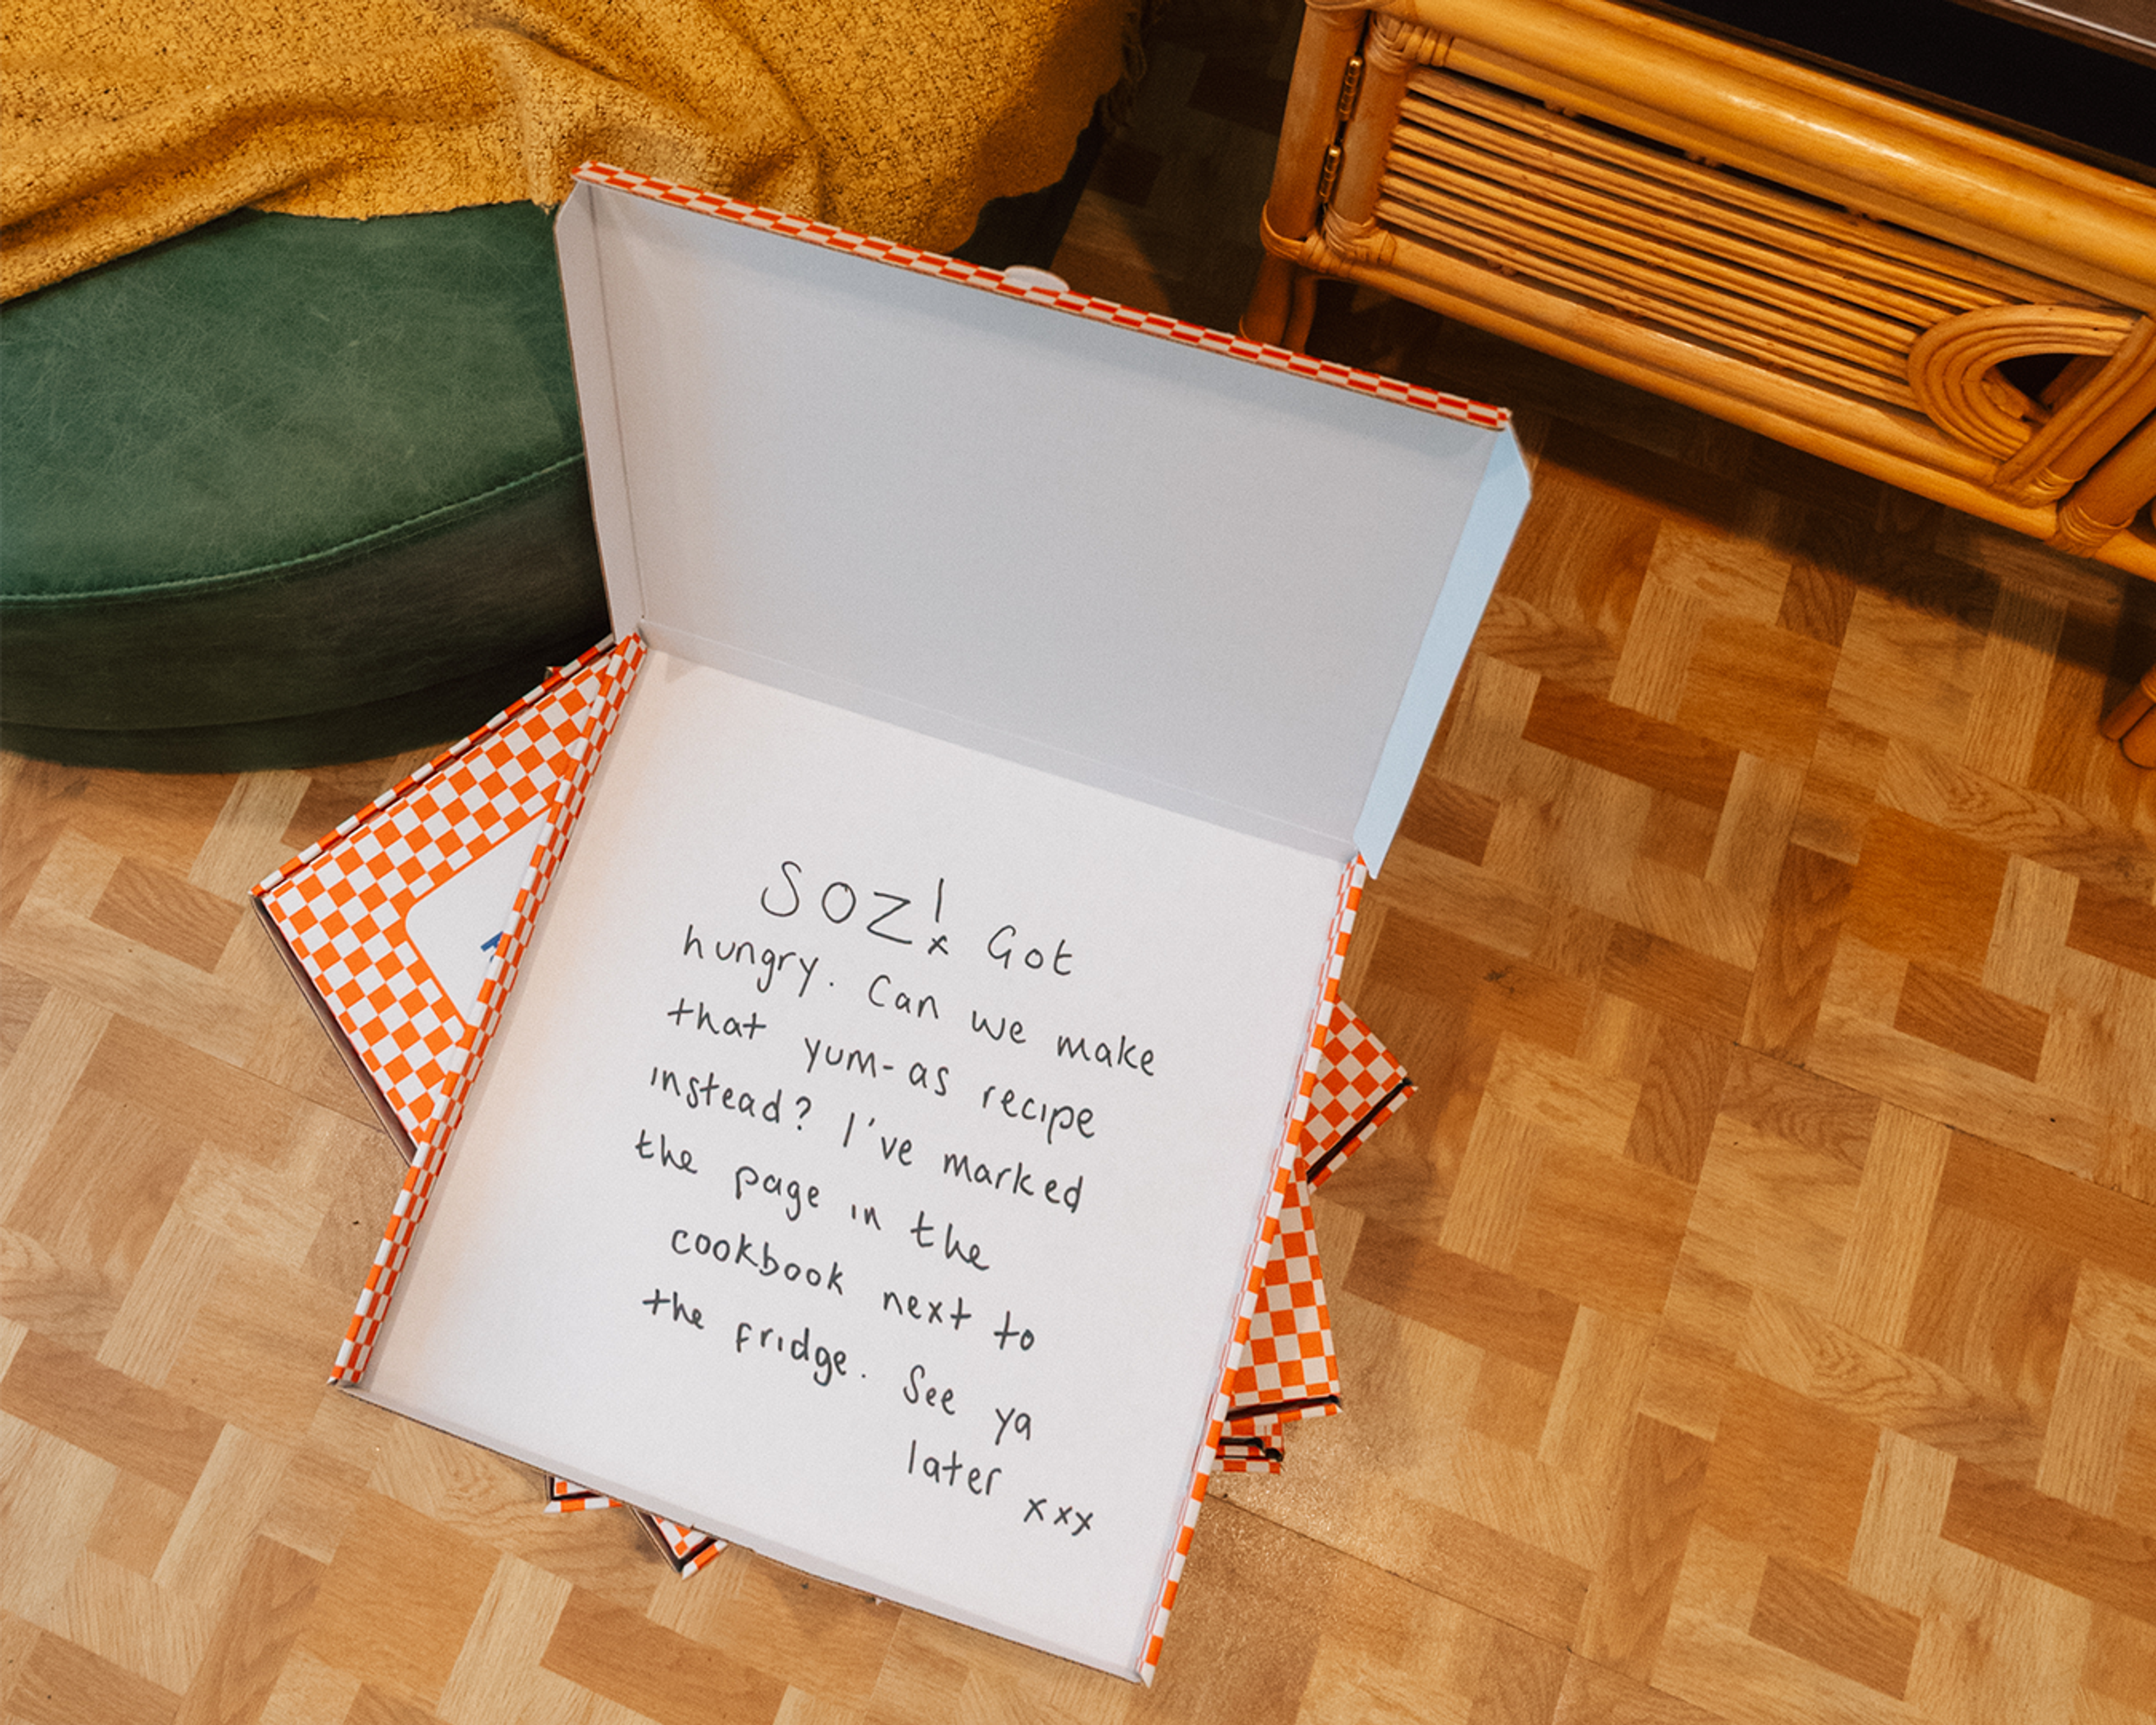 SOZ! Got
hungry. Can we make
that yum-as recipe
instead? I've marked
the page in the
cookbook next to
the fridge. See ya
later xxx